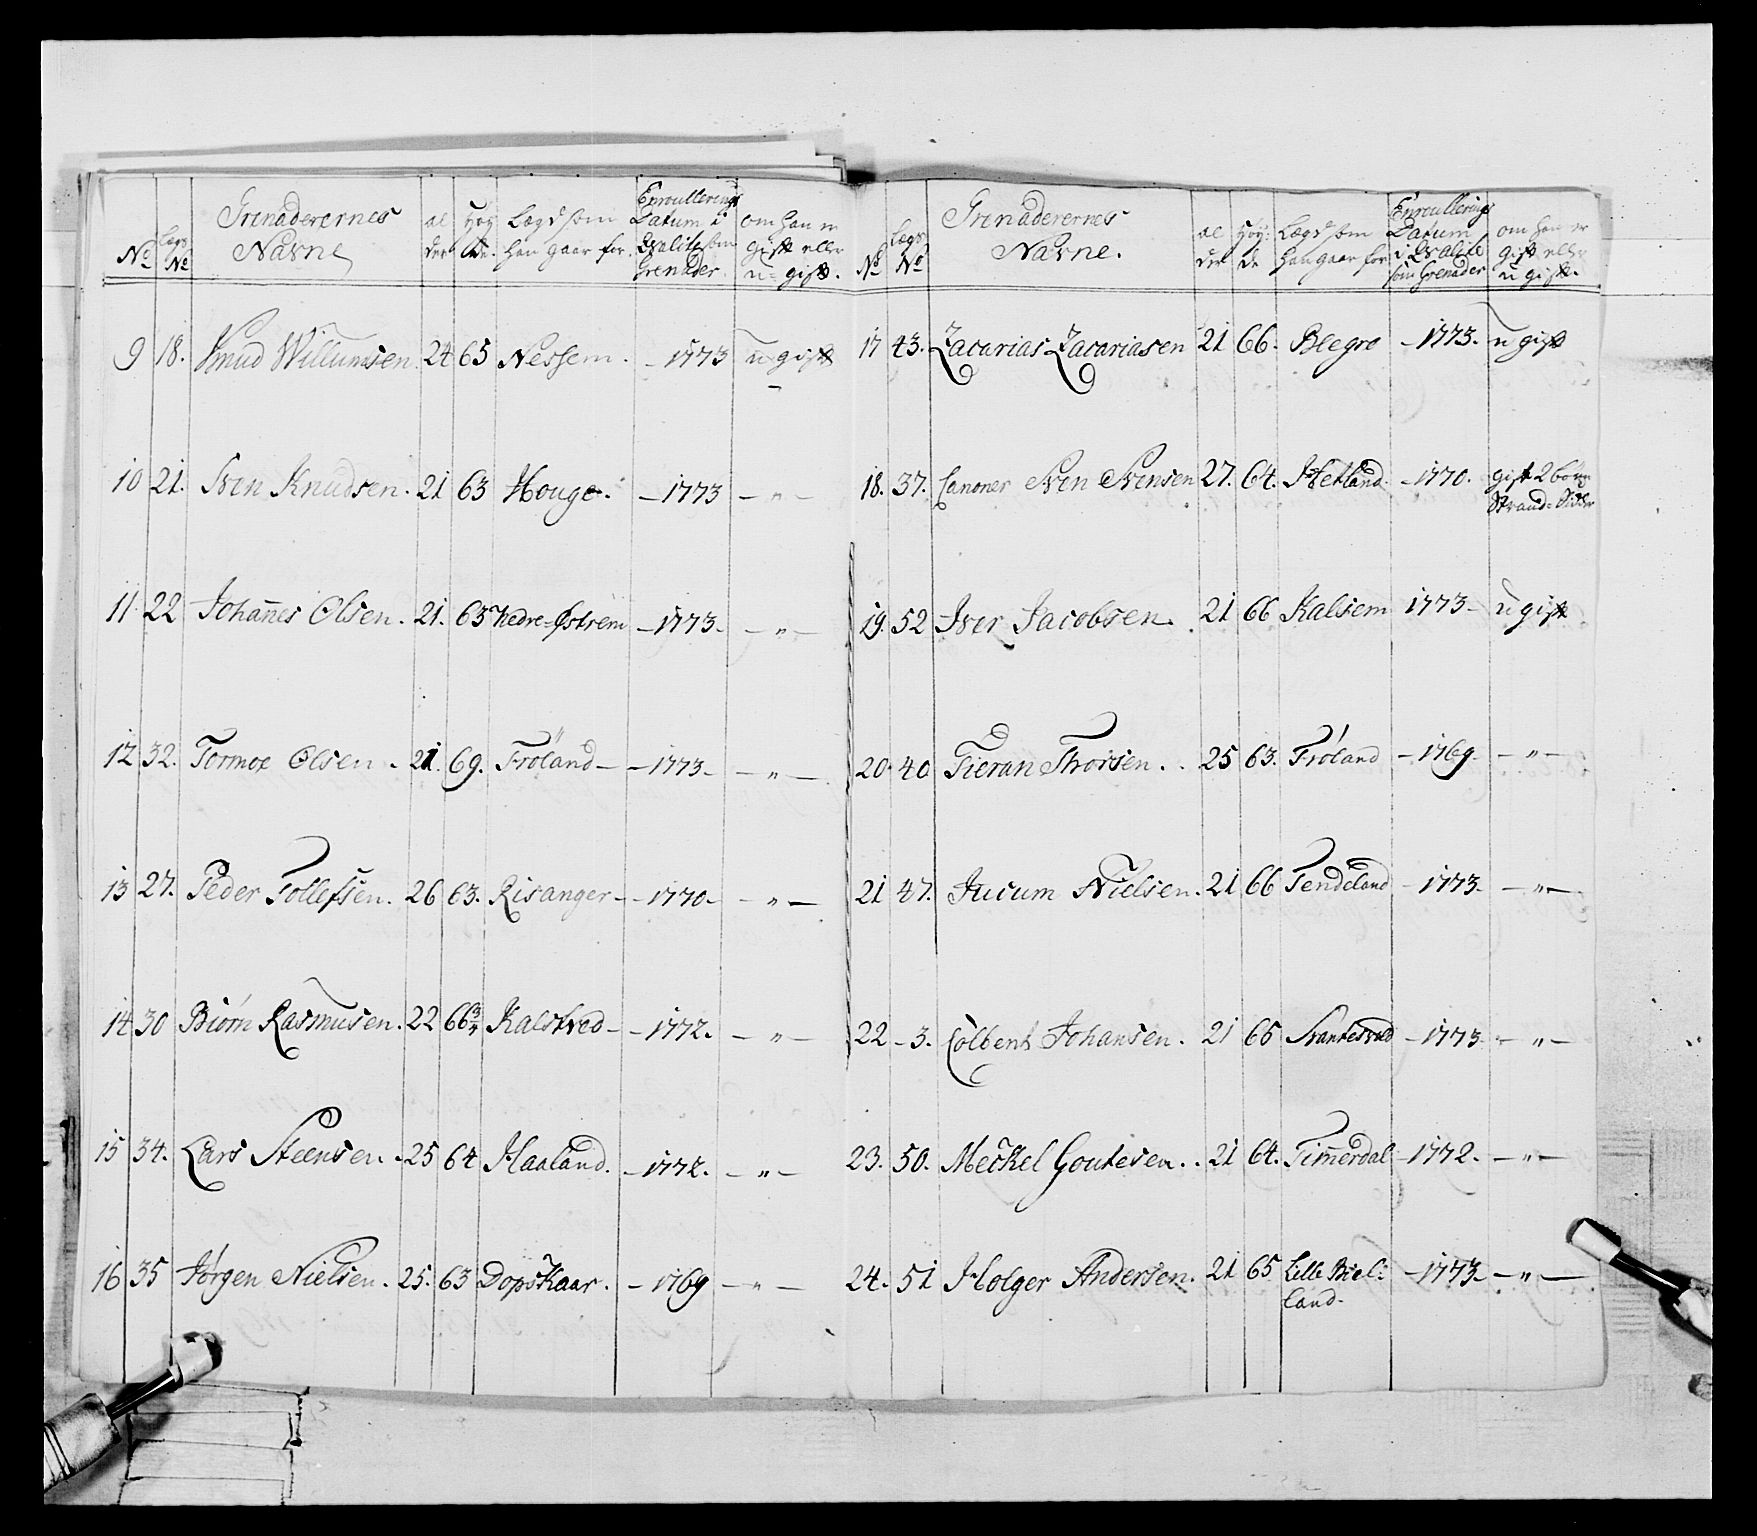 No Lægs No Grenaderernes Navne al der Høy de. Lægd som han gaar for. Enroullerings Datum i Qvalite som Grenader. om han er gift eller u-gift.
9 18. Knud Willumsen. 24 65 Nessem. - 1773 u-gift
10 21. Sven Knudsen. 21 63 Houge. - 1773 - " -
11 22 Johannes Olsen. 21. 63 Nedre-Østrem - 1773. - " -
12 32. Tormoe Olsen. 21. 69. Frøland - - 1773. - " -
13 27. Peder Tollefsen. 26 63. Risanger - - 1770. - " -
14 30 Biørn Rasmusen. 22 66 3/4 Kalstved - - 1772. - " -
15 34. Lars Steensen. 25 64 Haaland. - 1772. - " -
16 35 Jørgen Nielsen. 25. 63 Dopskaar. - 1769 - " -
No Lægs No Grenaderernes Navne. al der Høy: de Lægd som han gaar for Enroullerings Datum i Qvalite som Grenader om han er gift eller u gift.
17 43. Zacarias Zacariasen 21 66. Blegro - 1773. u gift
18. 37. Canoner Sven Svensen 27. 64. Hetland. - 1770. gift 2 børn
Strand-Sidder
19. 52 Iver Jacobsen. 21 66 Kalsem 1773 - u gift
20. 40 Tieran Thorsen. 25 63. Frøland - 1769. - " -
21 47. Jucum Nielsen. 21 66 Tendeland - 1773. - " -
22 - 3. Colbent Johansen. 21 65 - 1773 - " -
23. 50. Meckel Goutesen. 21 64. Timerdal - 1772. - " -
24. 51 Holger Andersen. 21 65 Lille Biel:
land. - 1773 - " -